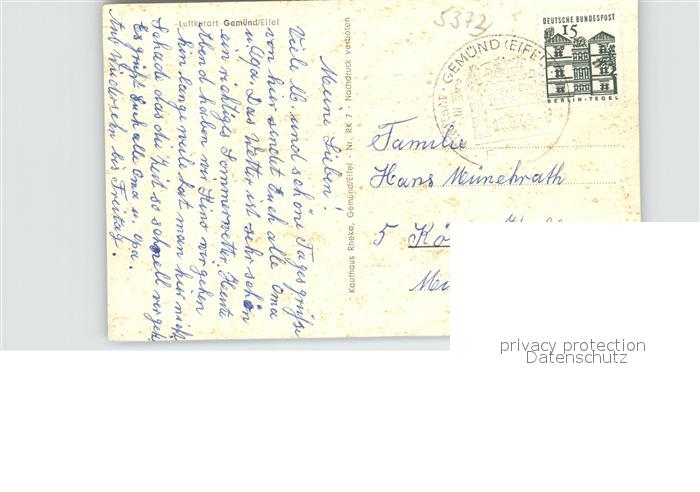 Luftkurort Gemünd/Eifel
Meine Lieben!
Viele lb. und schöne Tages grüße
von hier sendet Euch alle Oma
u. Opa. Das Wetter ist sehr schön
ein richtiges Sommerwetter. Heute
Abend haben wir Kino wir gehen
hin lange weile hat man hier nicht
Schade das die Zeit so schnell vergeht
Es grüßt Euch alle Oma u. Opa.
Auf Wiedersehn bis Freitag.
Kaufhaus Rheka, Gemünd/Eifel · Nr. RK 7 · Nachdruck verboten
5372
GEMÜND (EIFEL
DEUTSCHE BUNDESPOST
15
BERLIN-TEGEL
Familie
Hans Münchrath
5 Kö
privacy protection
Datenschutz